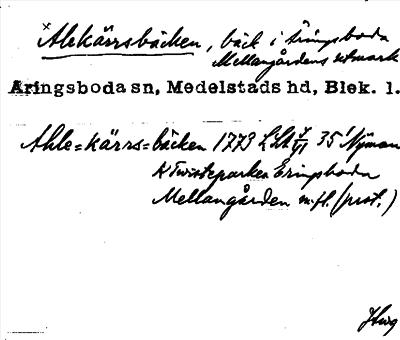 × Alekärrsbäcken, bäck i Åringsboda
Mellangårdens utmark
Åringsboda sn, Medelstads hd, Blek. l.
Ahle=kärrs=bäcken 1779 35 Nyman
K Twisteparken Eringsboda
Mellangården m.fl. (prot.)